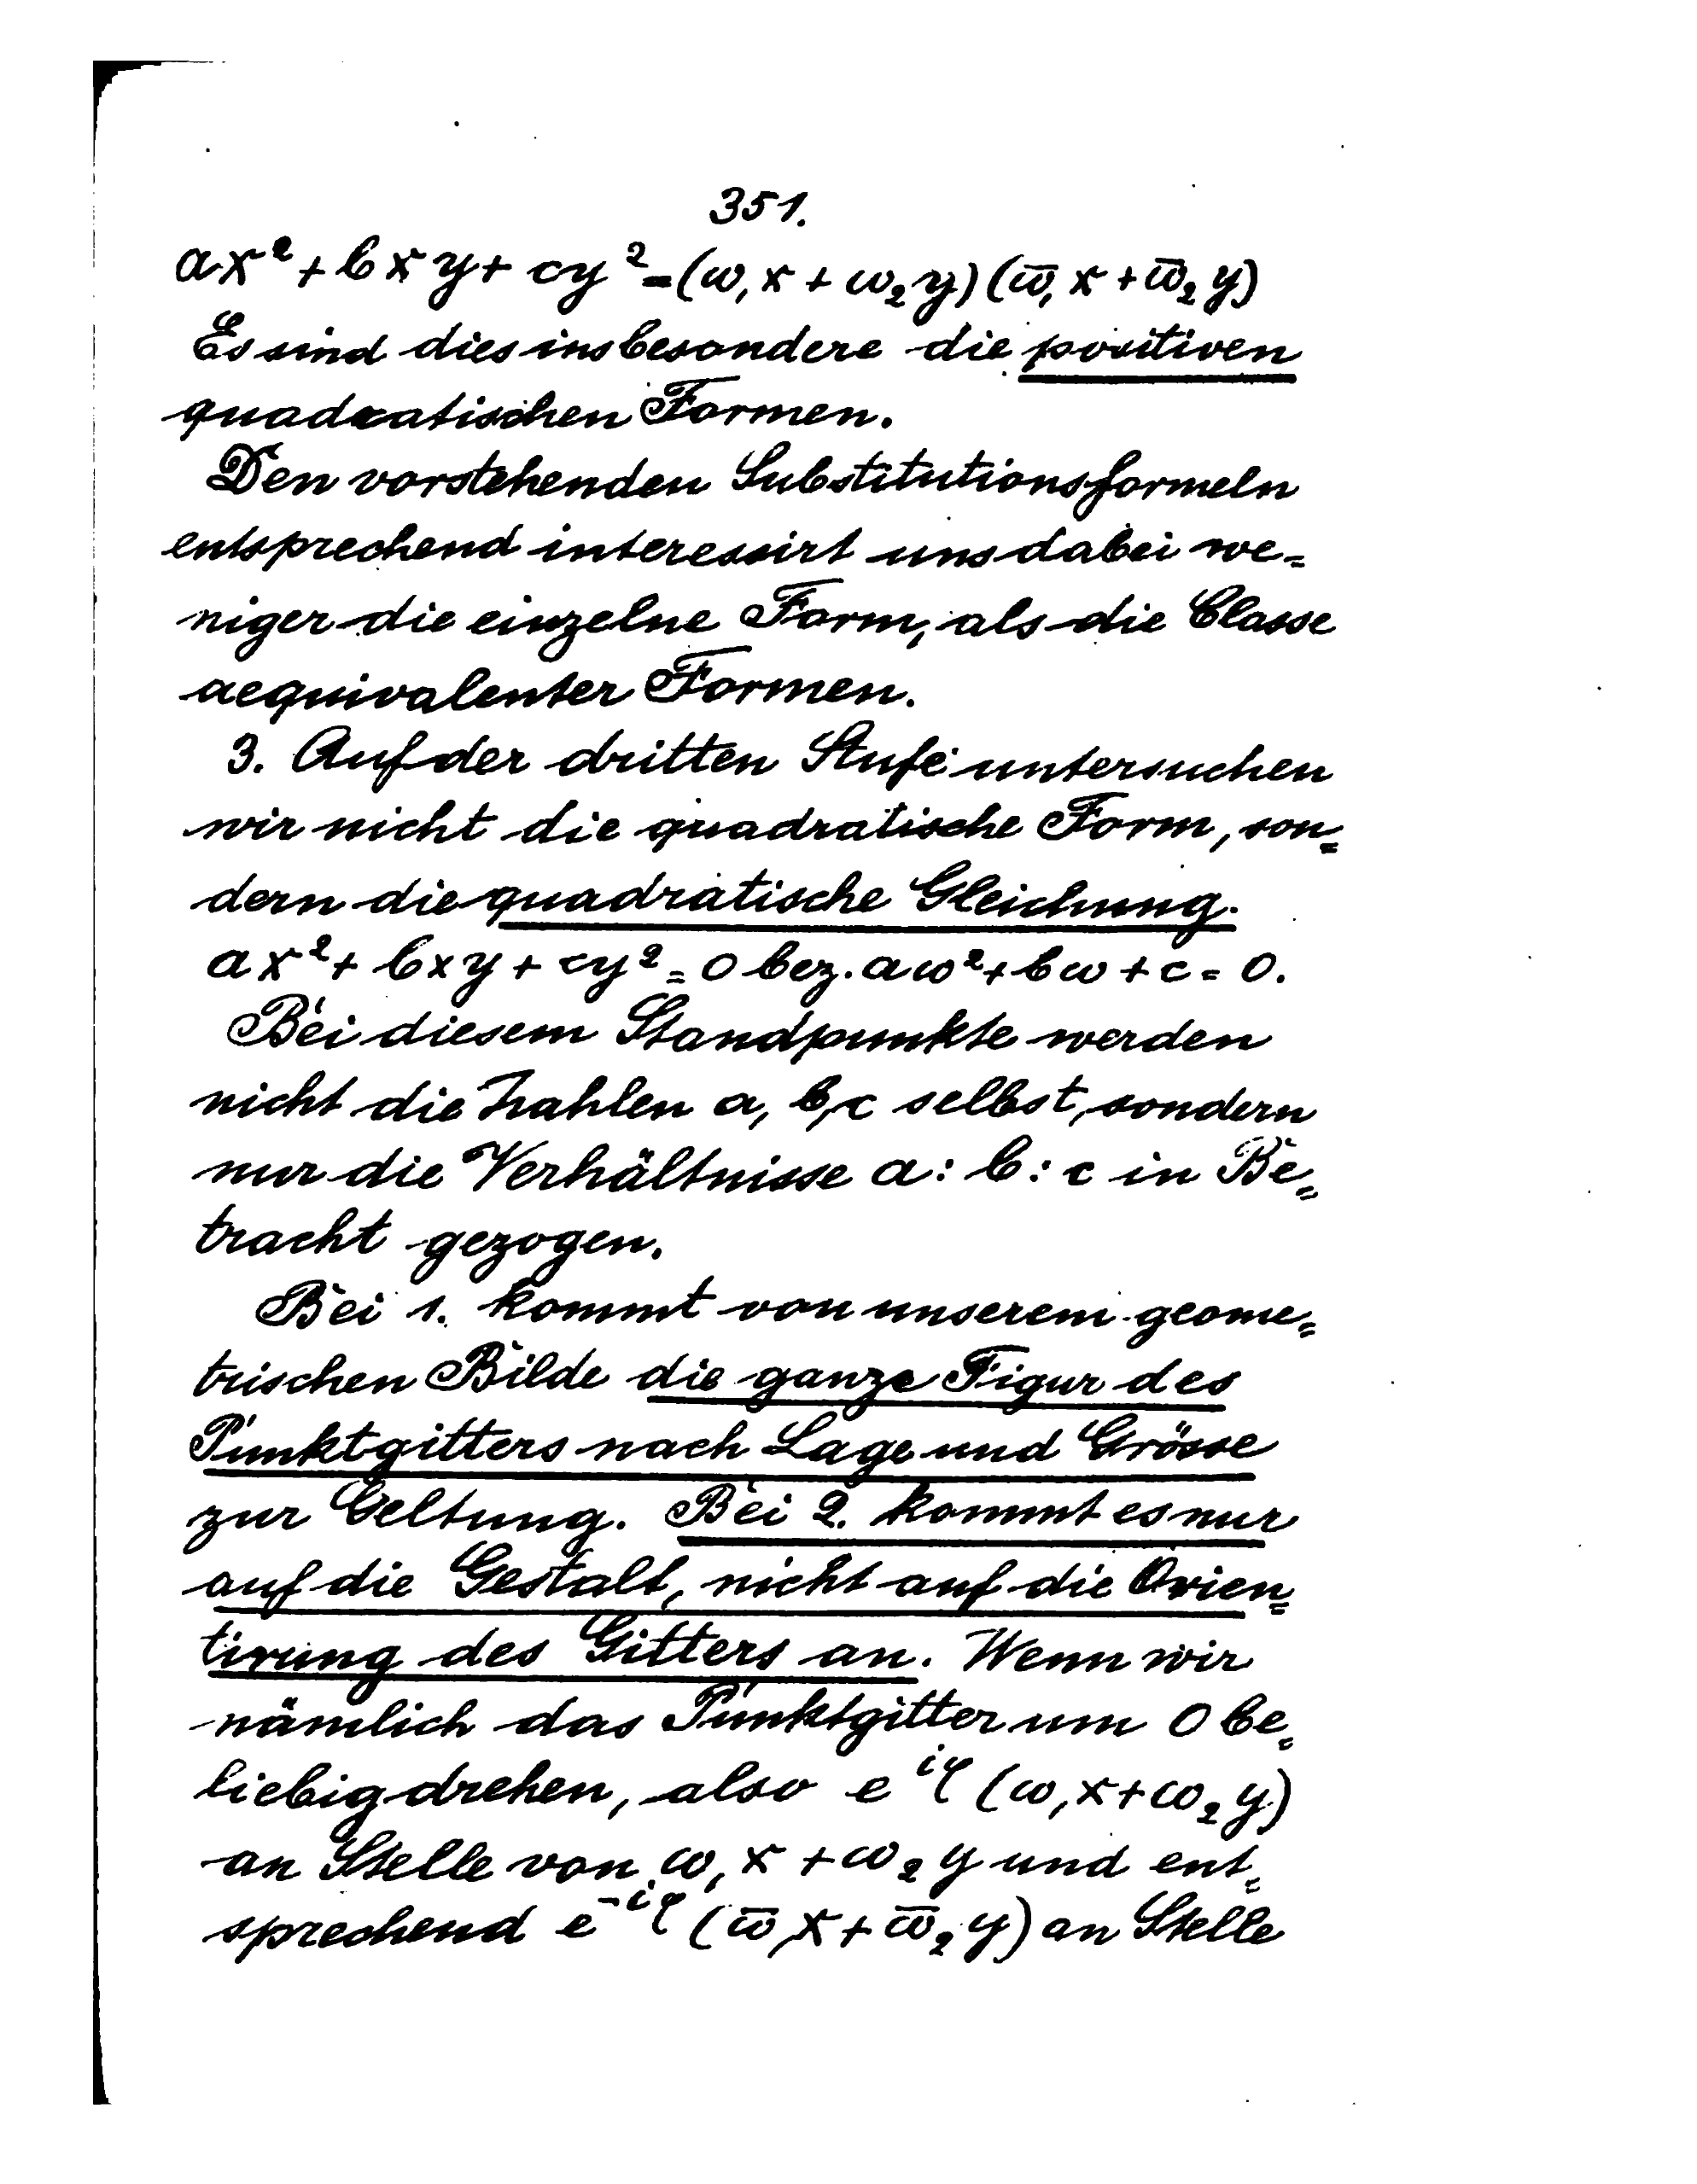 351.
ax² + bxy + cy² = (ω₁x + ω₂y)(ω̅₁x + ω̅₂y)
Es sind dies insbesondere die positiven
quadratischen Formen.
Den vorstehenden Substitutionsformeln
entsprechend interessirt uns dabei we=
niger die einzelne Form, als die Classe
aequivalenter Formen.
3. Auf der dritten Stufe untersuchen
wir nicht die quadratische Form, son=
dern die quadratische Gleichung.
ax² + bxy + cy² = 0 bez. aω² + bω + c = 0.
Bei diesem Standpunkte werden
nicht die Zahlen a, b, c selbst, sondern
nur die Verhältnisse a : b : c in Be=
tracht gezogen.
Bei 1. kommt von unserem geome=
trischen Bilde die ganze Figur des
Punktgitters nach Lage und Grösse
zur Geltung. Bei 2. kommt es nur
auf die Gestalt, nicht auf die Orien=
tirung des Gitters an. Wenn wir
nämlich das Punktgitter um 0 be=
liebig drehen, also e^{iφ} (ω₁x + ω₂y)
an Stelle von ω₁x + ω₂y und ent=
sprechend e^{-iφ} (ω̅₁x + ω̅₂y) an Stelle